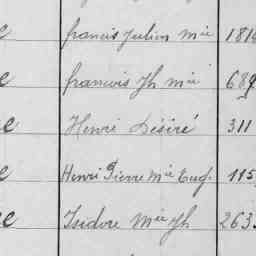 e francis Julien Mie 181
e francois Jh Mie 689
e Henri Désiré 311
e Henri Pierre Mie Eug. 115
e Isidore Mie Jh 263